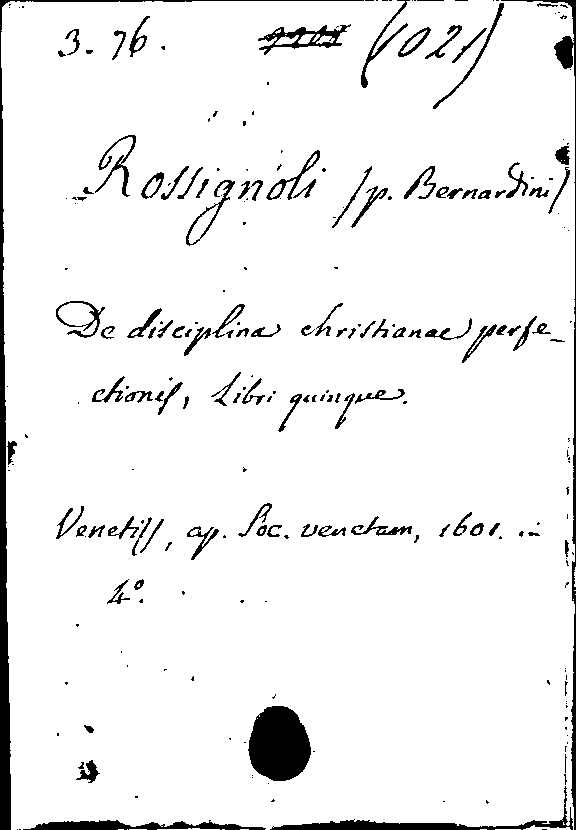 3. 76. (1021)
Rossignoli /p. Bernardini/
De disciplina christianae perfe-
ctionis, Libri quinque.
Venetiss, ap. Soc. venetam, 1601. in
4º.